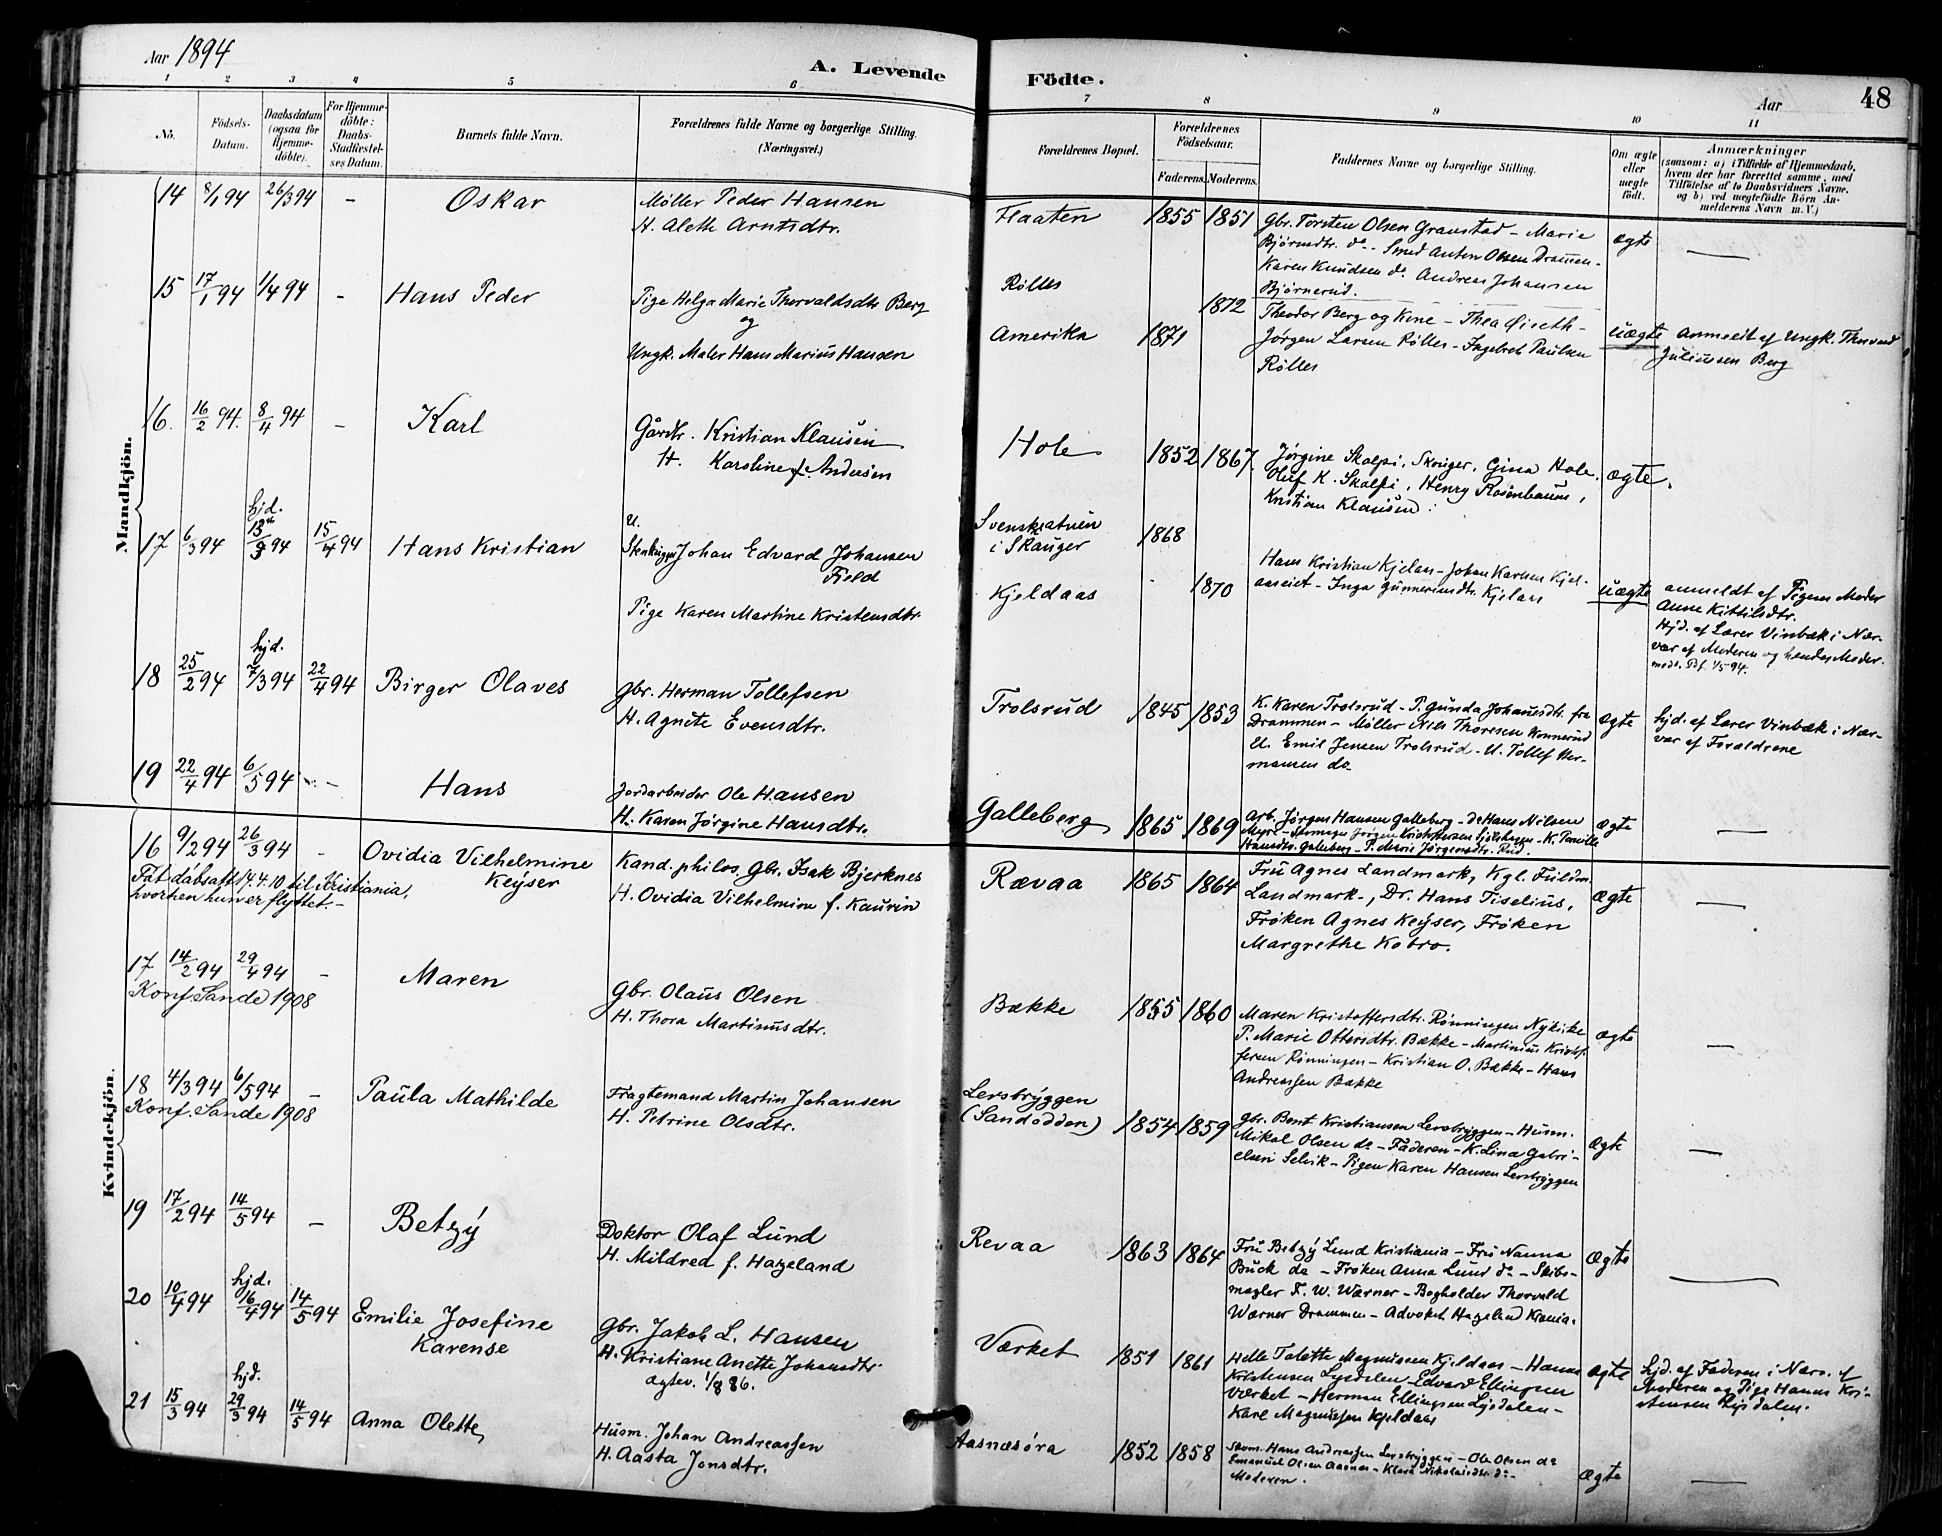 Aar 1894
A. Levende Födte.
Aar
48
1 2 3 4 5 6 7 8 9 10 11
No.
Födsels-
Datum.
Daabsdatum
(ogsaa for
Hjemme-
döbte).
For Hjemme-
döbte:
Daabs-
Stadfæstel-
ses Datum.
Barnets fulde Navn.
Forældrenes fulde Navne og borgerlige Stilling.
(Næringsvei.)
Forældrenes Bopæl.
Forældrenes
Födselsaar.
Faderens. Moderens.
Faddernes Navne og borgerlige Stilling.
Om ægte
eller
uægte
födt.
Anmærkninger
(saasom: a) i Tilfælde af Hjemmedaab,
hvem der har forrettet samme, med
Tilföielse af to Daabsvidners Navne.
og b) ved uægtefödte Börn An-
melderens Navn m.V.)
Mandkjön.
14 8/1 94 26/3 94 - Oskar
Möller Peder Hansen
H. Alette Arntsdtr.
Flaaten 1855 1851
Gbr. Torsten Olsen Granstad - Marie
Bjørnsdtr. do - Smed Anton Olsen Drammen -
Karen Knudsen do Andreas Johansen
Bjørnerud.
ægte
15 17/1 94 1/4 94 - Hans Peder
Pige Helga Marie Thorvaldsdtr Berg
og
Ungk. Maler Hans Marius Hansen
Rølles
1872
Amerika 1871
Theodor Berg og Kone - Thea Øiseth -
Jørgen Larsen Rølles - Ingebret Paulsen
Rølles
uægte
Anmeldt af Ungk. Thorvald
Juliussen Berg
16. 16/2 94. 8/4 94 - Karl
Gårdbr. Kristian Klausen
H. Karoline f. Andersen
Hole 1852 1867.
Jørgine Skalpi, Skouger, Gina Hole,
Oluf K. Skalpi, Henry Rosenbaum,
Kristian Klausen.
ægte.
17 6/3 94 hjd. 13/3 94 15/4 94 Hans Kristian
U.
Stenhugger Johan Edvard Johansen
Field
Pige Karen Martine Kristensdtr.
Svenskatuen
i Skauger 1868
Kjeldaas 1870
Hans Kristian Kjelaas - Johan Karlsen Kjel-
aaseiet - Inga Gunnerusdtr. Kjelaas
uægte
anmeldt af Pigens Moder
Anne Kittilsdtr.
Hjd. af Lærer Vinbæk i Nær-
vær af Moderen og hendes Moder.
18 25/2 94 hjd. 7/3 94 22/4 94 Birger Olaves
Gbr. Herman Tollefsen
H. Agnete Evensdtr.
Trolsrud 1845 1853
K. Karen Trolsrud - P. Gunda Johansdtr. fra
Drammen - Møller Nils Thoresen Konnerud
U. Emil Jensen Trolsrud - U. Tollef Her-
mansen do
ægte
hjd. af Lærer Vinbæk i Nær-
vær af Forældrene
19 22/4 94 6/5 94 - Hans
Jordarbeider Ole Hansen
H. Karen Jørgine Hansdtr.
Galleberg 1865 1869
Arb. Jørgen Hansen Galleberg - do Hans Nilsen
Myre - Jørgen Kristoffersen - K. Pernille
Hansdtr. Galleberg - P. Marie Jørgensdtr. Rud.
ægte
Kvindekjön.
16 9/2 94 26/3 94 - Ovidia Vilhelmine
Keyser
Fåt dåbsatt 14.4.10 til Kristiania,
hvorhen hun er flyttet. -
Kand. philos. Gbr. Isak Bjerknes
H. Ovidia Vilhelmine f. Kaurin
Rævaa 1865 1864
Fru Agnes Landmark, Kgl. Fuldm.
Landmark -, Dr. Hans Tiselius,
Frøken Agnes Keyser, Frøken
Margrethe Kobro.
ægte
17 14/2 94 29/4 94 - Maren
Konf. Sande 1908
Gbr. Olaus Olsen
H. Thora Martinusdtr.
Bække 1855 1860
Maren Kristoffersdtr. Rønningen Nykirke
P. Marie Ottersdtr. Bække - Martinius Kristof-
fersen Rønningen - Kristian O. Bække - Hans
Andreassen Bække
ægte
18 4/3 94 6/5 94 - Paula Mathilde
Konf. Sande 1908
Fragtemand Martin Johansen
H. Petrine Olsdtr.
Lersbryggen
(Sandodden) 1854 1859
Gbr. Bent Kristiansen Lersbryggen - Husm.
Mikal Olsen do - Faderen - K. Lina Gabri-
elsen Selvik - Pigen Karen Hansen Lersbryggen
ægte
19 17/2 94 14/5 94 - Betzy
Doktor Olaf Lund
H. Mildred f. Hazeland
Revaa 1863 1864
Fru Betzy Lund Kristiania - Fru Nanna
Buck do - Frøken Anna Lund do - Skibs-
mægler F. W. Warner - Bogholder Thorvald
Warner Drammen - Advokat Hazeland Krania.
ægte
20 10/4 94 hjd. 16/4 94 14/5 94 Emilie Josefine
Karense
Gbr. Jakob L. Hansen
H. Kristiane Anette Johansdtr.
ægtev. 1/8 86.
Værket 1851 1861
Helle Talette Magnussen Kjeldaas - Hanna
Kristensen Lysdalen - Edvard Ellingsen
Værket - Herman Ellingsen Lysdalen -
Karl Magnussen Kjeldaas
ægte
hjd. af Faderen i Nærv. af
Moderen og Pige Hanna Kri-
stensen Lysdalen.
21 15/3 94 hjd. 29/3 94 14/5 94 Anna Olette
Husm. Johan Andreassen
H. Aasta Jonsdtr.
Aasnæsøra 1852 1858
Hans Andreassen Lersbryggen - Ole Olsen do
Emanuel Olsen Aasnes - Klara Nikolaisdtr. do -
Moderen.
ægte